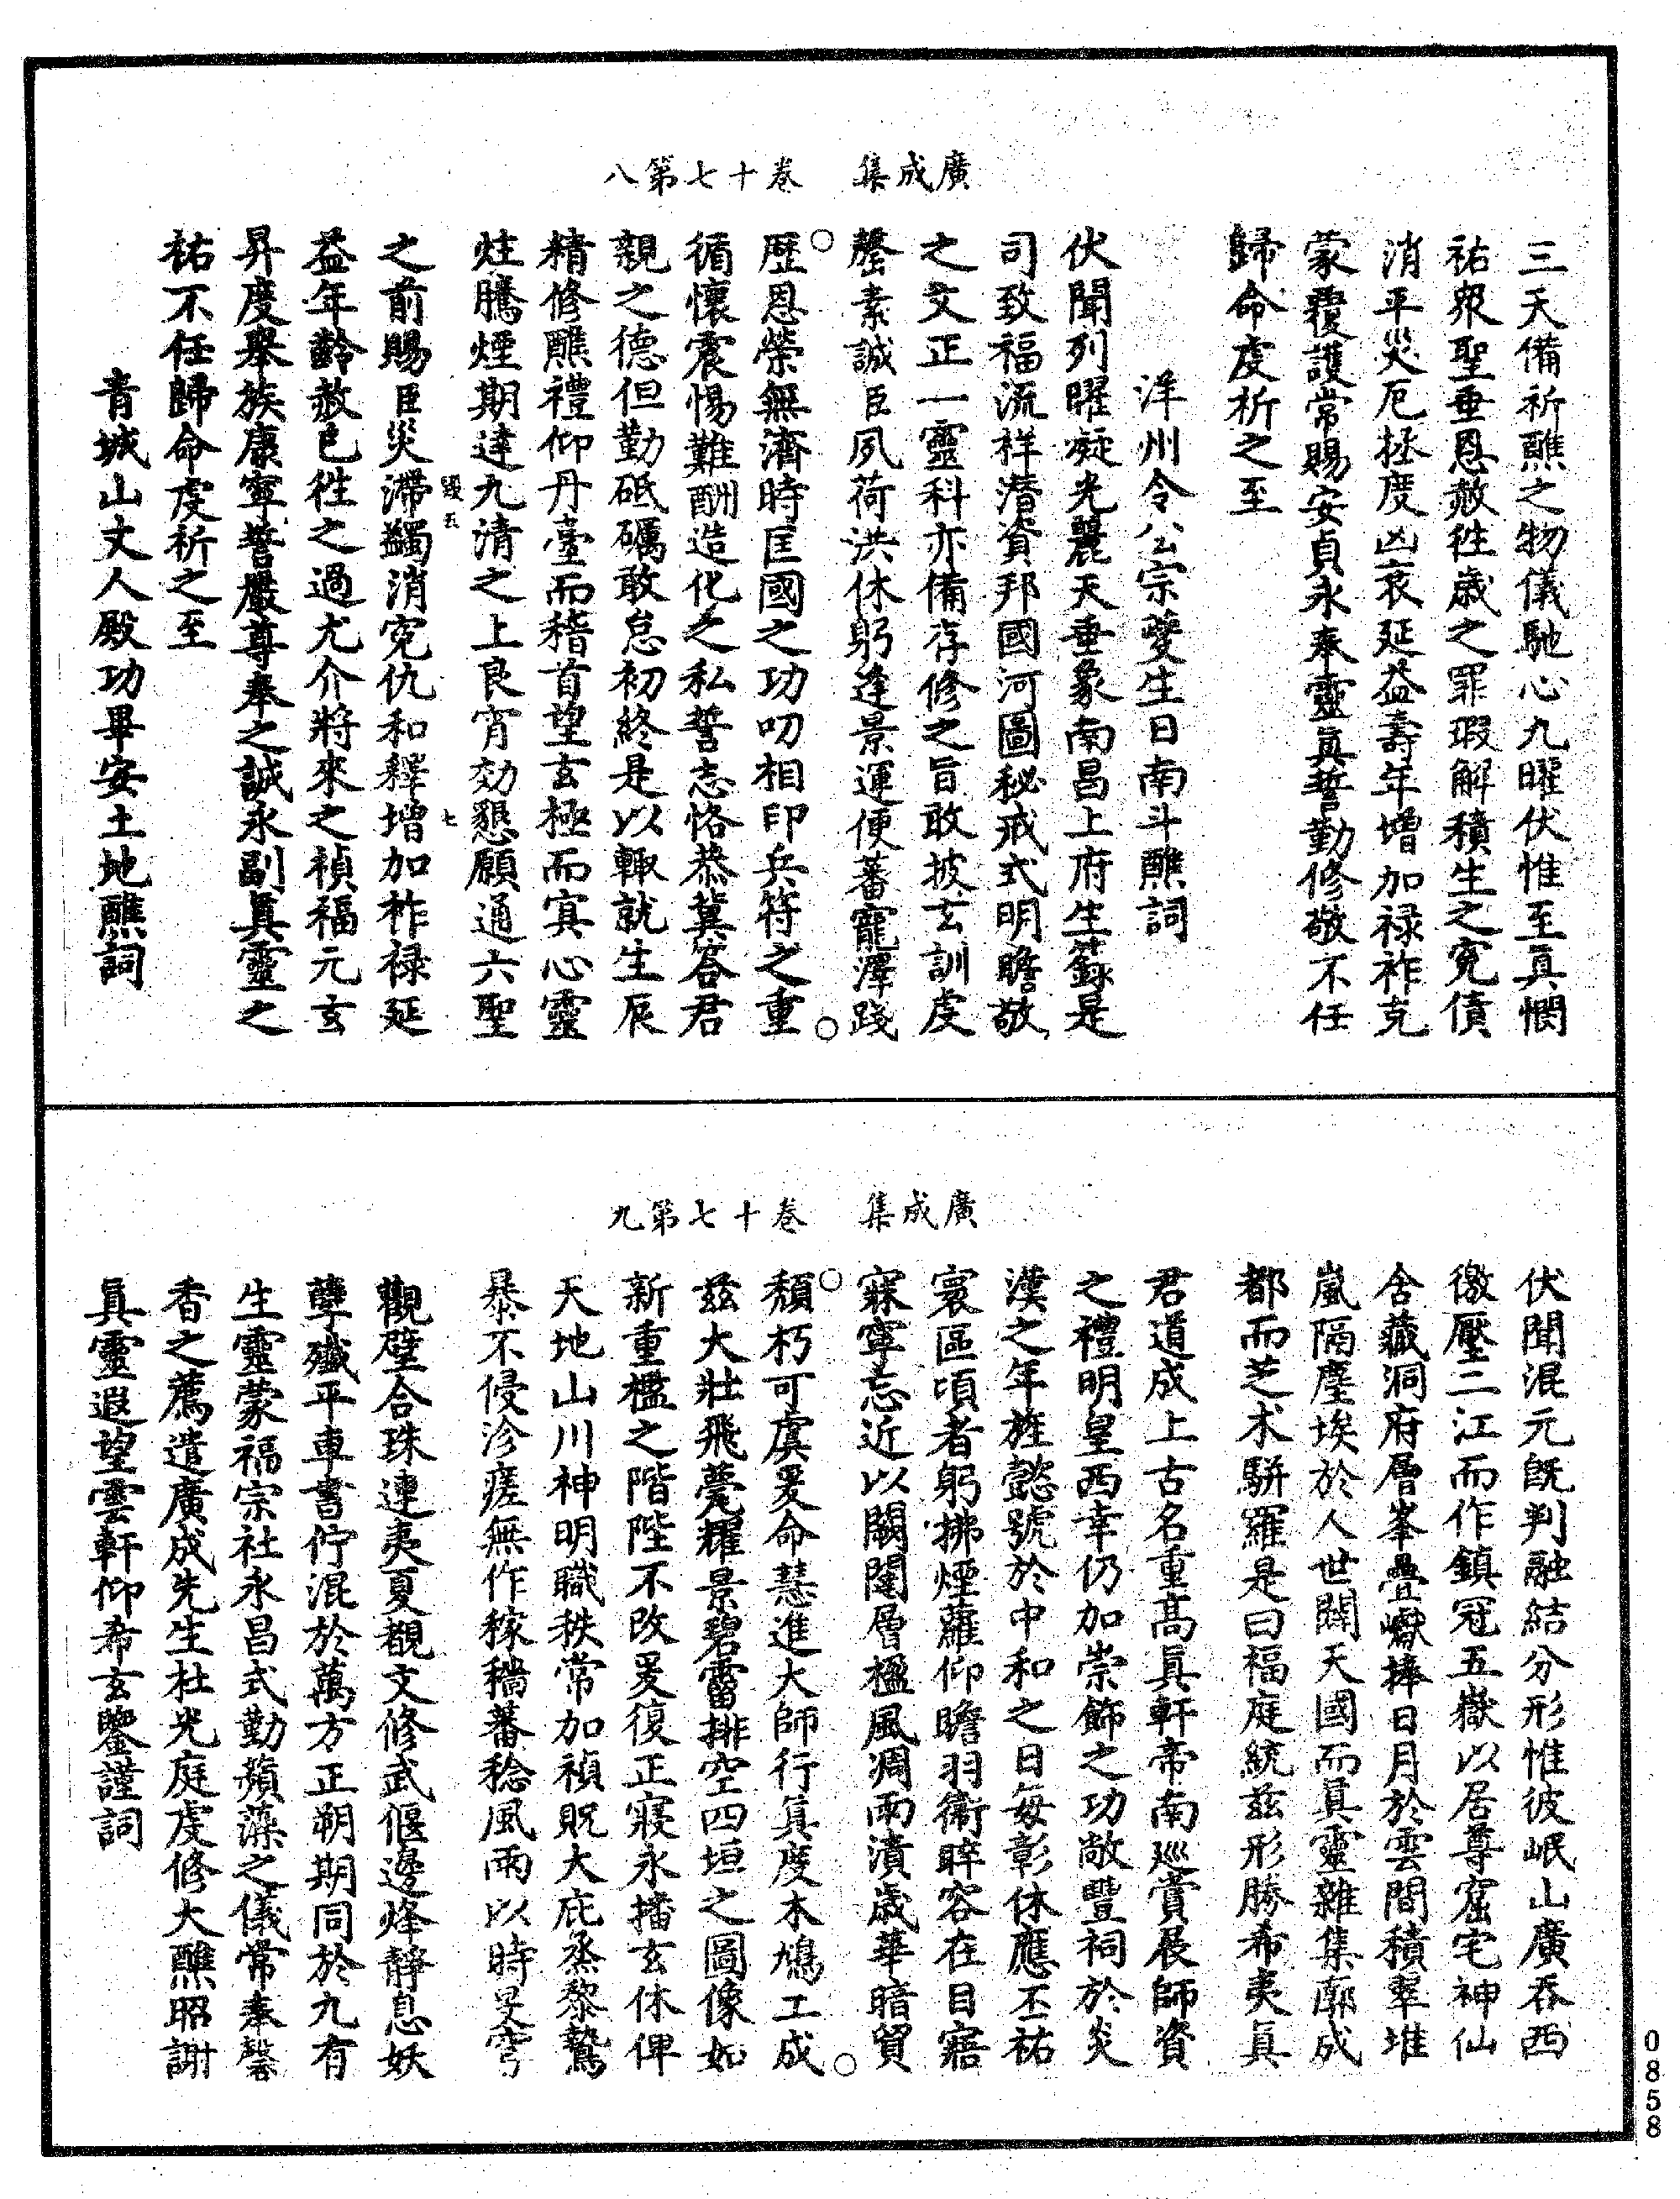 廣成集　卷十七第八
三天備祈醮之物儀馳心九曜伏惟至真憫
祐衆聖垂恩赦徃歲之罪瑕解積生之寃債
消平災厄拯度凶衰延益壽年增加禄祚克
蒙覆護常賜安貞永奉靈眞誓勤修敬不任
歸命虔祈之至
洋州令公宗夔生日南斗醮詞
伏聞列曜凝光麗天垂象南昌上府生籙是
司致福流祥潜資邦國河圖秘戒式明瞻敬
之文正一靈科亦備存修之旨敢披玄訓虔
罄素誠臣夙荷洪休躬逢景運便蕃寵澤踐
歷恩榮無濟時匡國之功叨相印兵符之重
循懷震惕難酬造化之私誓志恪恭冀答君
親之德但勤砥礪敢怠初終是以輙就生辰
精修醮禮仰丹臺而稽首望玄極而寘心靈
炷騰煙期達九清之上良宵効懇願通六聖
之前賜臣災滯蠲消寃仇和釋增加祚禄延
益年齡赦已徃之過尤介將來之禎福元玄
昇度舉族康寧誓嚴尊奉之誠永副眞靈之
祐不任歸命虔祈之至
青城山丈人殿功畢安土地醮詞
毀五
七
廣成集　卷十七第九
伏聞混元旣判融結分形惟彼岷山廣吞西
徼壓二江而作鎮冠五嶽以居尊窟宅神仙
含藏洞府層峯疊巘捧日月於雲間積翠堆
嵐隔塵埃於人世闢天國而眞靈雜集廓成
都而芝术駢羅是曰福庭統茲形勝希夷眞
君道成上古名重高眞軒帝南廵賞展師資
之禮明皇西幸仍加崇飾之功敞豐祠於炎
漢之年旌懿號於中和之日每彰休應丕祐
寰區頃者躬拂煙蘿仰瞻羽衛睟容在目寤
寐寧忘近以闕闥層楹風凋雨漬歲華暗貿
頹朽可虞爰命慧進大師行眞度木鳩工成
茲大壯飛甍耀景碧霤排空四垣之圖像如
新重檻之階陛不改爰復正寢永播玄休俾
天地山川神明職秩常加禎貺大庇烝黎驁
暴不侵沴瘥無作稼穡蕃稔風雨以時旻穹
觀璧合珠連夷夏覩文修武偃邊烽靜息妖
孽殲平車書佇混於萬方正朔期同於九有
生靈蒙福宗社永昌式勤蘋藻之儀常奉馨
香之薦遣廣成先生杜光庭虔修大醮昭謝
眞靈遐望雲軒仰希玄鑒謹詞
0858